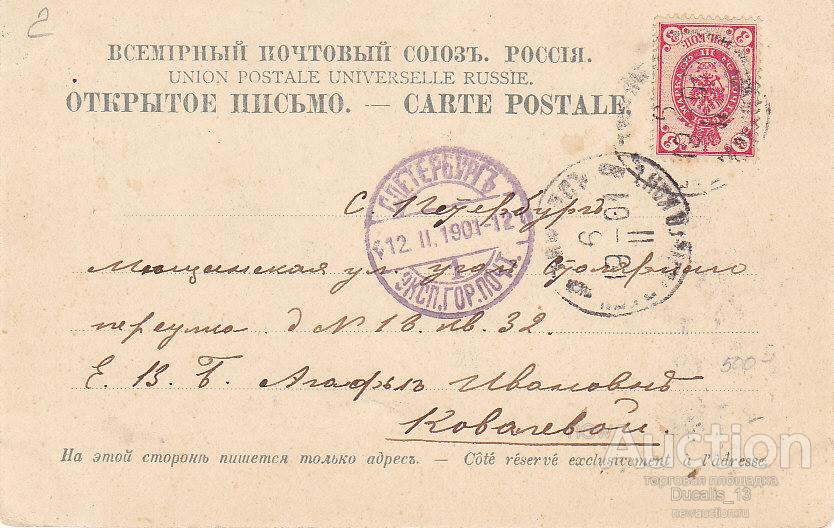 2
ВСЕМІРНЫЙ ПОЧТОВЫЙ СОЮЗЪ. РОССІЯ.
UNION POSTALE UNIVERSELLE RUSSIE.
ОТКРЫТОЕ ПИСЬМО. — CARTE POSTALE
С.ПЕТЕРБУРГЪ
12 II.1901-12
1
ЭКСП.ГОР.ПОЧТ.
10 II 01
С Петербургъ
Мѣщанская ул. уголъ Столярнаго
переулка д N 18 кв. 32.
Е. В. Б. Агафьѣ Ивановнѣ
Ковалевой.
500
На этой сторонѣ пишется только адресъ. — Côté réservé exclusivement à l'adresse.
Auction
торговая площадка
Ducalis_13
newauction.ru